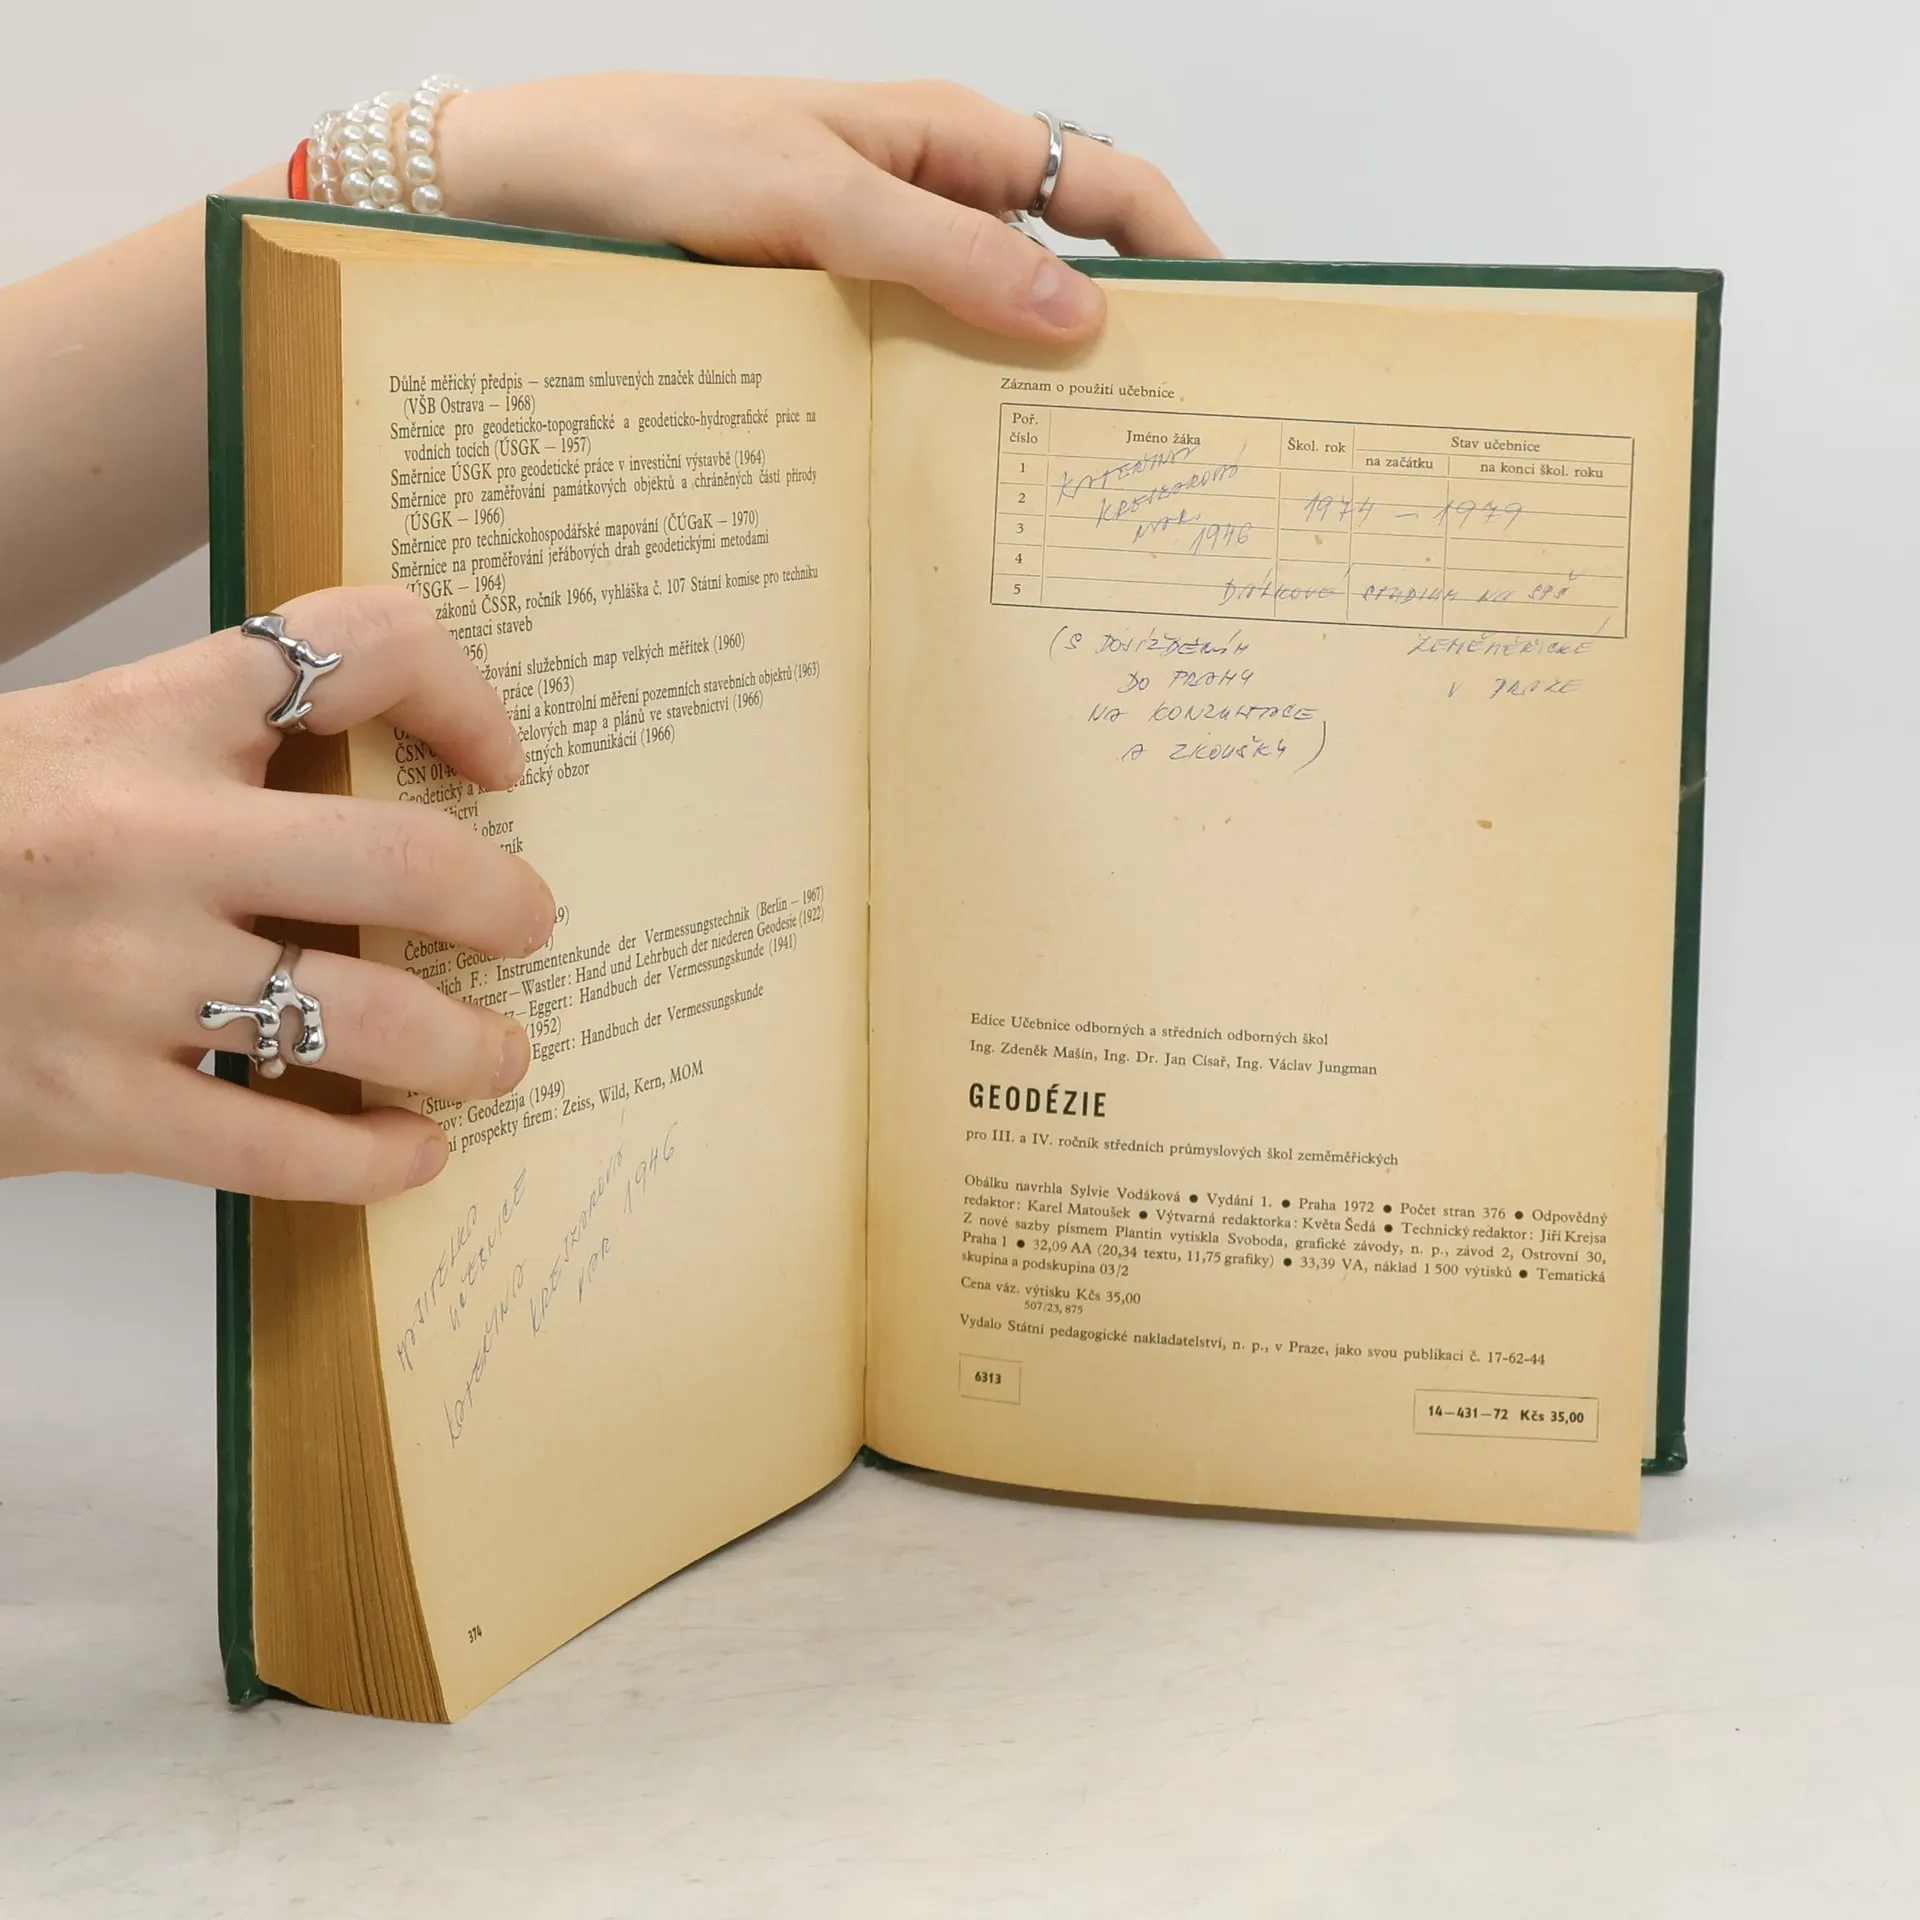 Důlně měřický předpis — seznam smluvených značek důlních map
(VŠB Ostrava — 1968)
Směrnice pro geodeticko-topografické a geodeticko-hydrografické práce na
vodních tocích (ÚSGK — 1957)
Směrnice ÚSGK pro geodetické práce v investiční výstavbě (1964)
Směrnice pro zaměřování památkových objektů a chráněných částí přírody
(ÚSGK — 1966)
Směrnice pro technickohospodářské mapování (ČÚGaK — 1970)
Směrnice na proměřování jeřábových drah geodetickými metodami
(ÚSGK — 1964)
zákonů ČSSR, ročník 1966, vyhláška č. 107 Státní komise pro techniku
mentaci staveb
56)
ržování služebních map velkých měřítek (1960)
práce (1963)
vání a kontrolní měření pozemních stavebních objektů (1963)
čelových map a plánů ve stavebnictví (1966)
ČSN stných komunikácií (1966)
ČSN 014
Geodetický a k grafický obzor
ictví
obzor
tník
9)
Čebotar
Denzin: Geod
lich F.: Instrumentenkunde der Vermessungstechnik (Berlin — 1967)
Hartner—Wastler: Hand und Lehrbuch der niederen Geodesie (1922)
tz—Eggert: Handbuch der Vermessungskunde (1941)
(1952)
Eggert: Handbuch der Vermessungskunde
(Stuttg
rov: Geodezija (1949)
ní prospekty firem: Zeiss, Wild, Kern, MOM
MAJITELKA
UČEBNICE
KATEŘINA
KREJZAROVÁ
NAR. 1946
374
Záznam o použití učebnice
Poř. číslo Jméno žáka Škol. rok Stav učebnice
na začátku na konci škol. roku
1 KATEŘINA
2 KREJZAROVÁ 1974 — 1979
3 NAR. 1946
4
5 DÁLKOVÉ STUDIUM NA SPŠ
(S DOJÍŽDĚNÍM ZEMĚMĚŘICKÉ
DO PRAHY V PRAZE
NA KONZULTACE
A ZKOUŠKY)
Edice Učebnice odborných a středních odborných škol
Ing. Zdeněk Mašín, Ing. Dr. Jan Císař, Ing. Václav Jungman
GEODÉZIE
pro III. a IV. ročník středních průmyslových škol zeměměřických
Obálku navrhla Sylvie Vodáková ● Vydání 1. ● Praha 1972 ● Počet stran 376 ● Odpovědný
redaktor: Karel Matoušek ● Výtvarná redaktorka: Květa Šedá ● Technický redaktor: Jiří Krejsa
Z nové sazby písmem Plantin vytiskla Svoboda, grafické závody, n. p., závod 2, Ostrovní 30,
Praha 1 ● 32,09 AA (20,34 textu, 11,75 grafiky) ● 33,39 VA, náklad 1 500 výtisků ● Tematická
skupina a podskupina 03/2
Cena váz. výtisku Kčs 35,00
507/23, 875
Vydalo Státní pedagogické nakladatelství, n. p., v Praze, jako svou publikaci č. 17-62-44
6313
14—431—72 Kčs 35,00